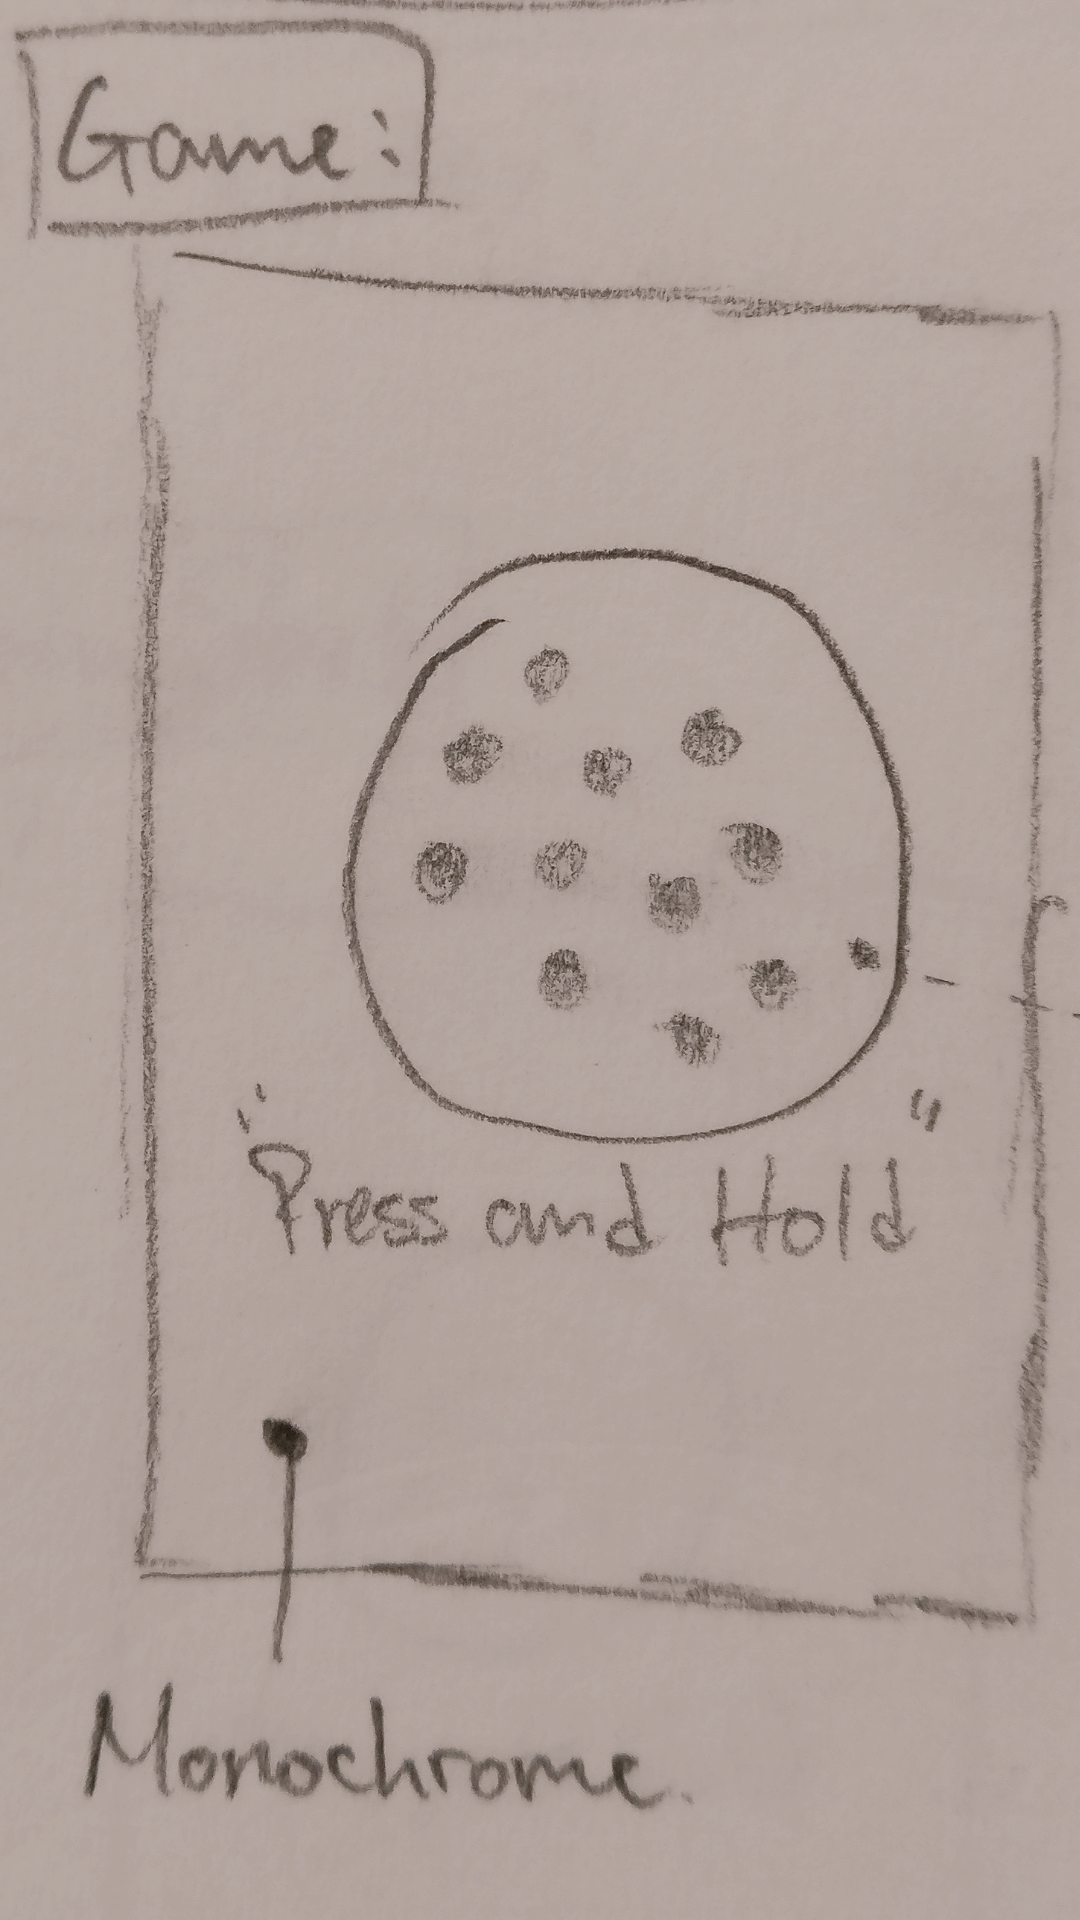 Game:
"Press and Hold"
Monochrome.